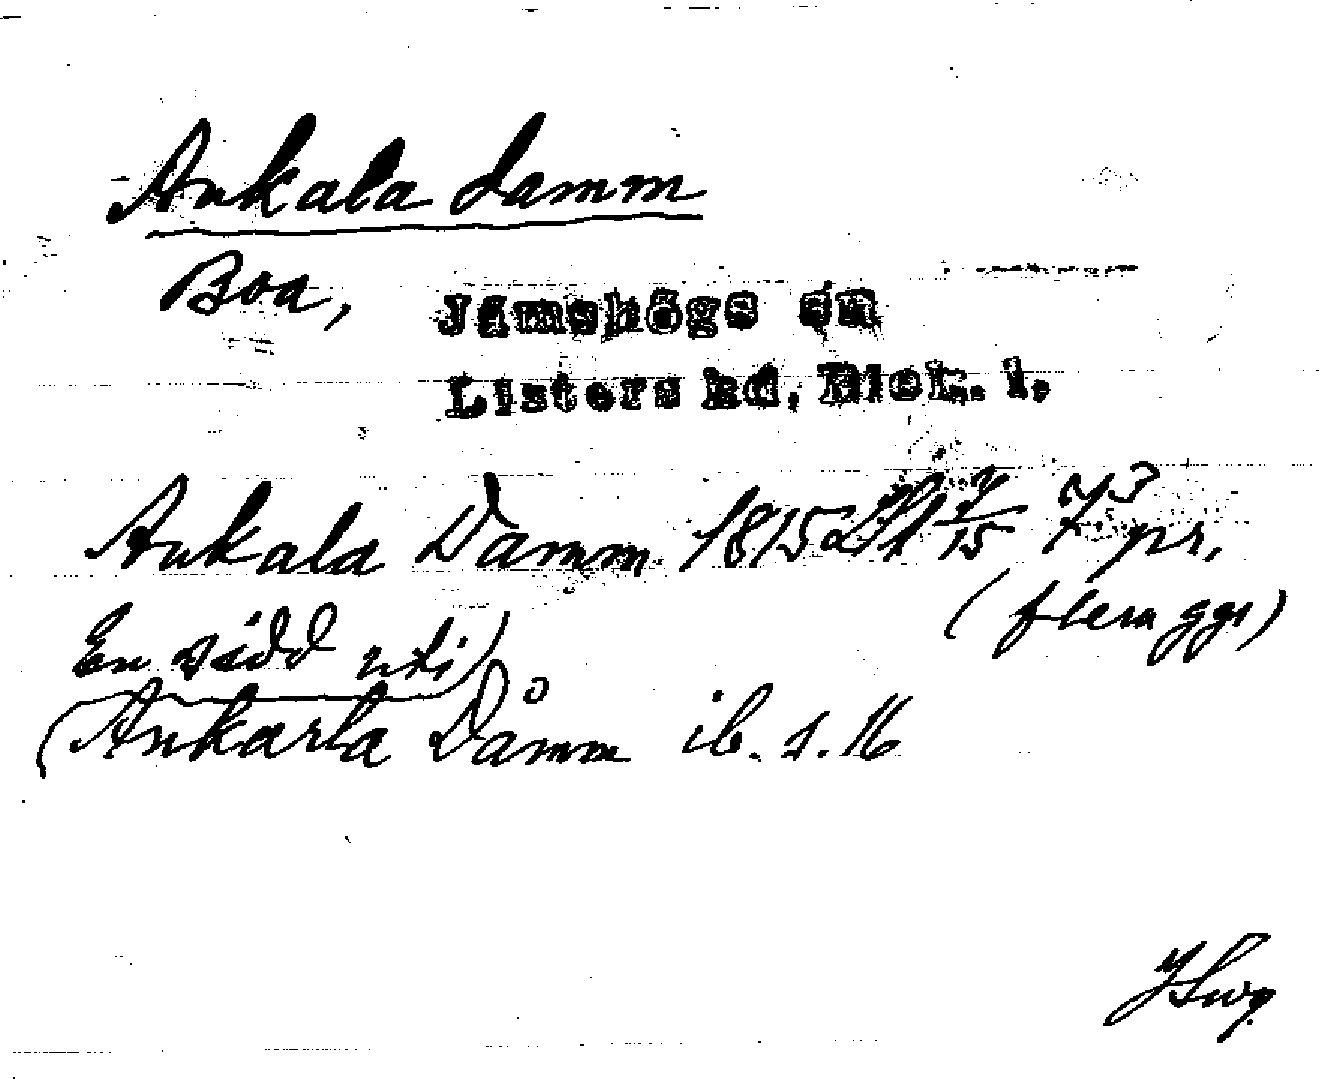 Ankala damm
Boa, Jämshögs sn
Listers hd, Blek. l.
Ankala Damm 1815 7/15 73 pr.
(flera ggr)
En sådd uti)
(Ankarla Dåmm ib. s. 16